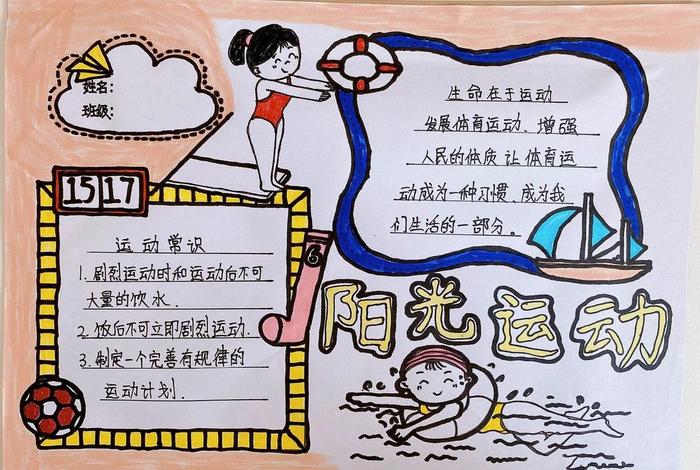 姓名：
班级：
生命在于运动
发展体育运动、增强
人民的体质让体育运
动成为一种习惯、成为我
们生活的一部分。
15 17
运动常识
1.剧烈运动时和运动后不可
大量的饮水.
2.饭后不可立即剧烈运动.
3.制定一个完善有规律的
运动计划.
6
阳光运动